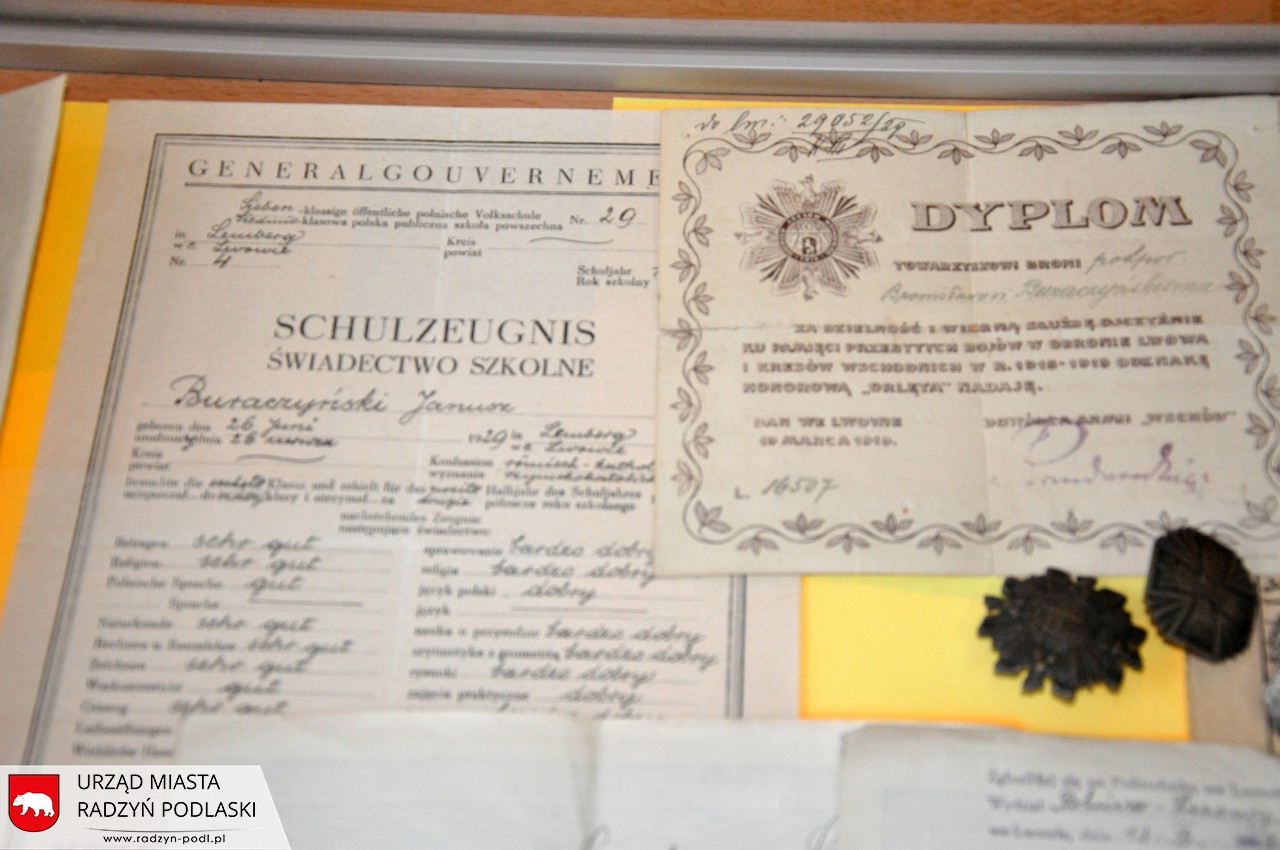 GENERALGOUVERNEME
Sieben -klassige öffentliche polnische Volksschule
siedmio klasowa polska publiczna szkoła powszechna
Nr. 29
in Lemberg
we Lwowie
Kreis
powiat
Nr. 4
Schuljahr
Rok szkolny
SCHULZEUGNIS
ŚWIADECTWO SZKOLNE
Buraczyński Janusz
geboren den 26 Juni
urodzony dnia 26 czerwca
1929 in Lemberg
we Lwowie
Kreis
powiat
Konfession römisch-kathol
wyznania rzymskokatolick
besuchte die sechste Klasse und erhielt für das zweite Halbjahr des Schuljahres
uczęszczał do szóstej klasy i otrzymał za drugie półrocze roku szkolnego
nachstehendes Zeugnis:
następujące świadectwo:
Betragen sehr gut
sprawowanie bardzo dobry
Religion sehr gut
religia bardzo dobry
Polnische Sprache gut
język polski dobry
Sprache
język
Naturkunde sehr gut
nauka o przyrodzie bardzo dobry
Rechnen u. Raumlehre sehr gut
arytmetyka z geometrią bardzo dobry
Zeichnen sehr gut
rysunki bardzo dobry
Werkunterricht gut
zajęcia praktyczne dobry
Gesang sehr gut
Leibesübungen
do lm: 29052/29
DYPLOM
TOWARZYSZOWI BRONI podpor.
Bronisławowi Buraczyńskiemu
ZA DZIELNOŚĆ I WIERNĄ SŁUŻBĘ OJCZYŹNIE
KU PAMIĘCI PRZEBYTYCH BOJÓW W OBRONIE LWOWA
I KRESÓW WSCHODNICH W R. 1918-1919 ODZNAKĘ
HONOROWĄ „ORLĘTA" NADAJĘ.
DAN WE LWOWIE
19 MARCA 1919.
DOWÓDCA ARMII „WSCHÓD"
L. 16507
Wydział
we Lwowie, dnia 12
URZĄD MIASTA
RADZYŃ PODLASKI
www.radzyn-podl.pl